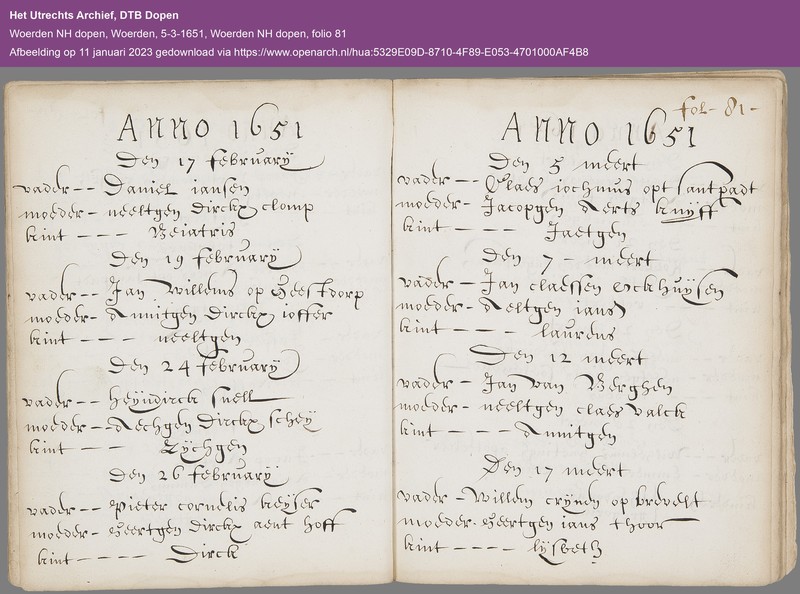 Het Utrechts Archief, DTB Dopen
Woerden NH dopen, Woerden, 5-3-1651, Woerden NH dopen, folio 81
Afbeelding op 11 januari 2023 gedownload via https://www.openarch.nl/hua:5329E09D-8710-4F89-E053-4701000AF4B8
Anno 1651
Den 17 februarij
vader -- Daniel iansen
moeder - neeltgen Dirckx clomp
kint --- Beiatris
Den 19 februarij
vader -- Jan Willems op Geestdorp
moeder - Annitgen Dirckx ioffer
kint --- neeltgen
Den 24 februarij
vader -- heyndirck snell
moeder - Aechgen Dirckx schey
kint --- Eychgen
Den 26 februarij
vader -- Pieter cornelis keyser
moeder - Geertgen Dirckx aent hoff
kint ---- Dirck
fol - 81 -
Anno 1651
Den 5 meert
vader -- Claes iochmus opt santpadt
moeder - Jacopgen Aerts kruyff
kint --- Jaetgen
Den 7 - meert
vader -- Jan claessen Ockhuysen
moeder - Aeltgen ians
kint --- laurens
Den 12 meert
vader -- Jan van Berghen
moeder - neeltgen claes valck
kint ---- Annitgen
Den 17 meert
vader - Willem crynen op brevelt
moeder - Geertgen ians thoor
kint ---- lysbeth